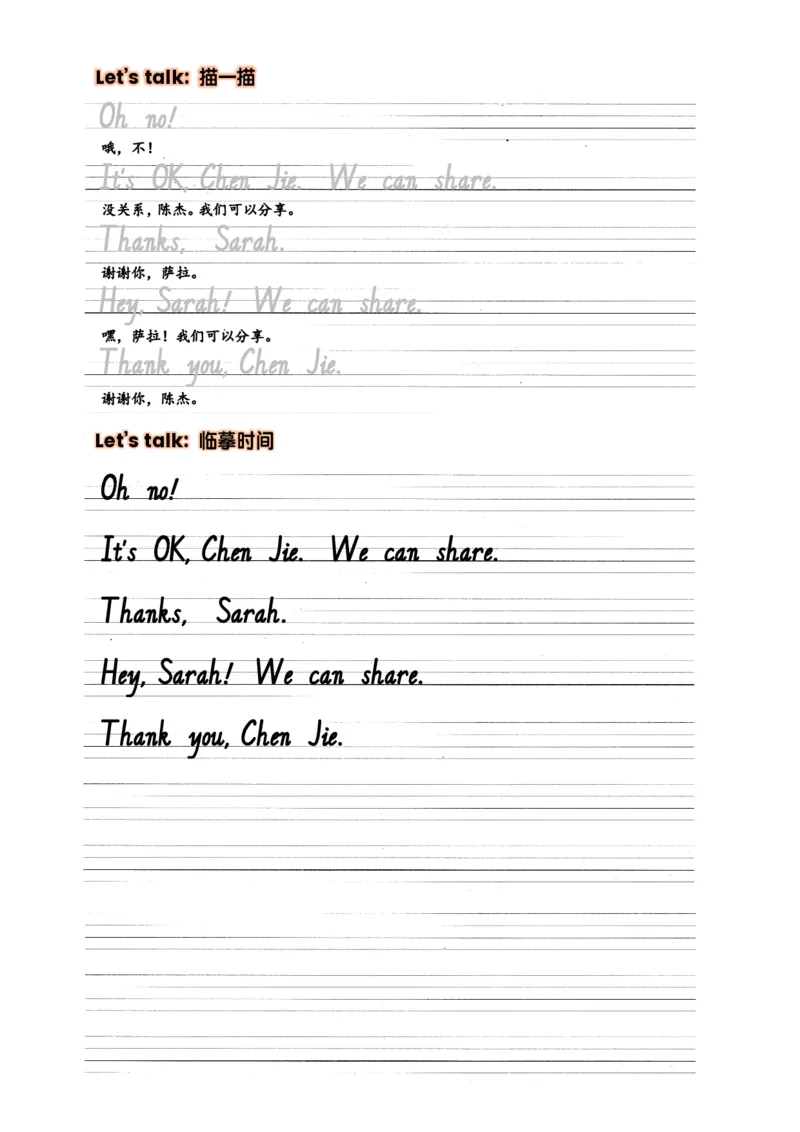 Let's talk: 描一描
Oh no!
哦，不！
It's OK, Chen Jie. We can share.
没关系，陈杰。我们可以分享。
Thanks, Sarah.
谢谢你，萨拉。
Hey, Sarah! We can share.
嘿，萨拉！我们可以分享。
Thank you, Chen Jie.
谢谢你，陈杰。
Let's talk: 临摹时间
Oh no!
It's OK, Chen Jie. We can share.
Thanks, Sarah.
Hey, Sarah! We can share.
Thank you, Chen Jie.